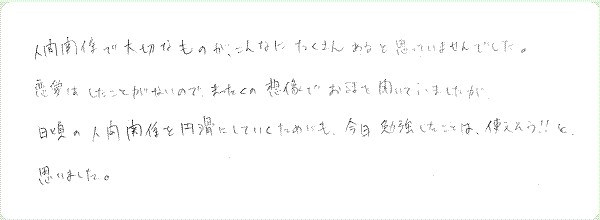 人間関係で大切なものが、こんなにたくさんあると思っていませんでした。
恋愛はしたことがないので、まったくの想像でお話を聞いていましたが、
日頃の人間関係を円滑にしていくためにも、今日勉強したことは、使えそう!!と、
思いました。